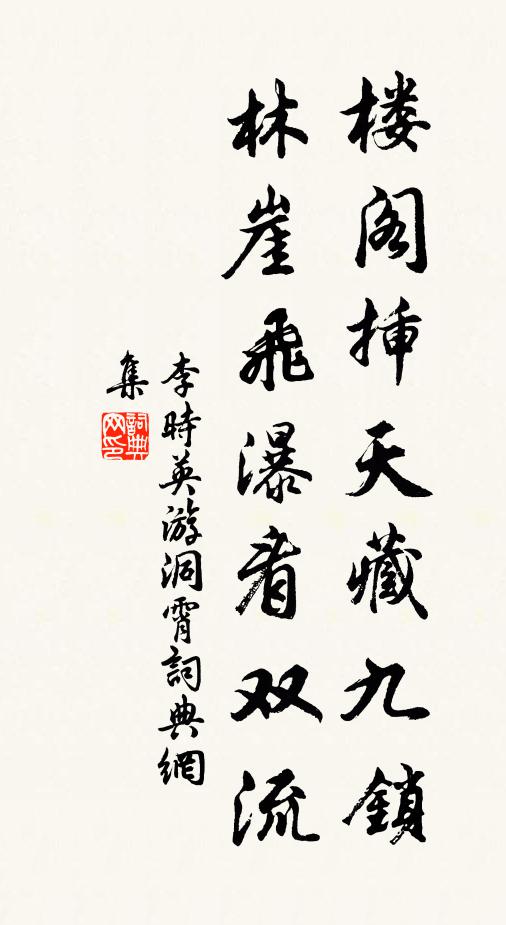 楼阁揷天藏九鎖
林崖飛瀑看双流
李時英游洞霄詞典網
集
詞典
网印